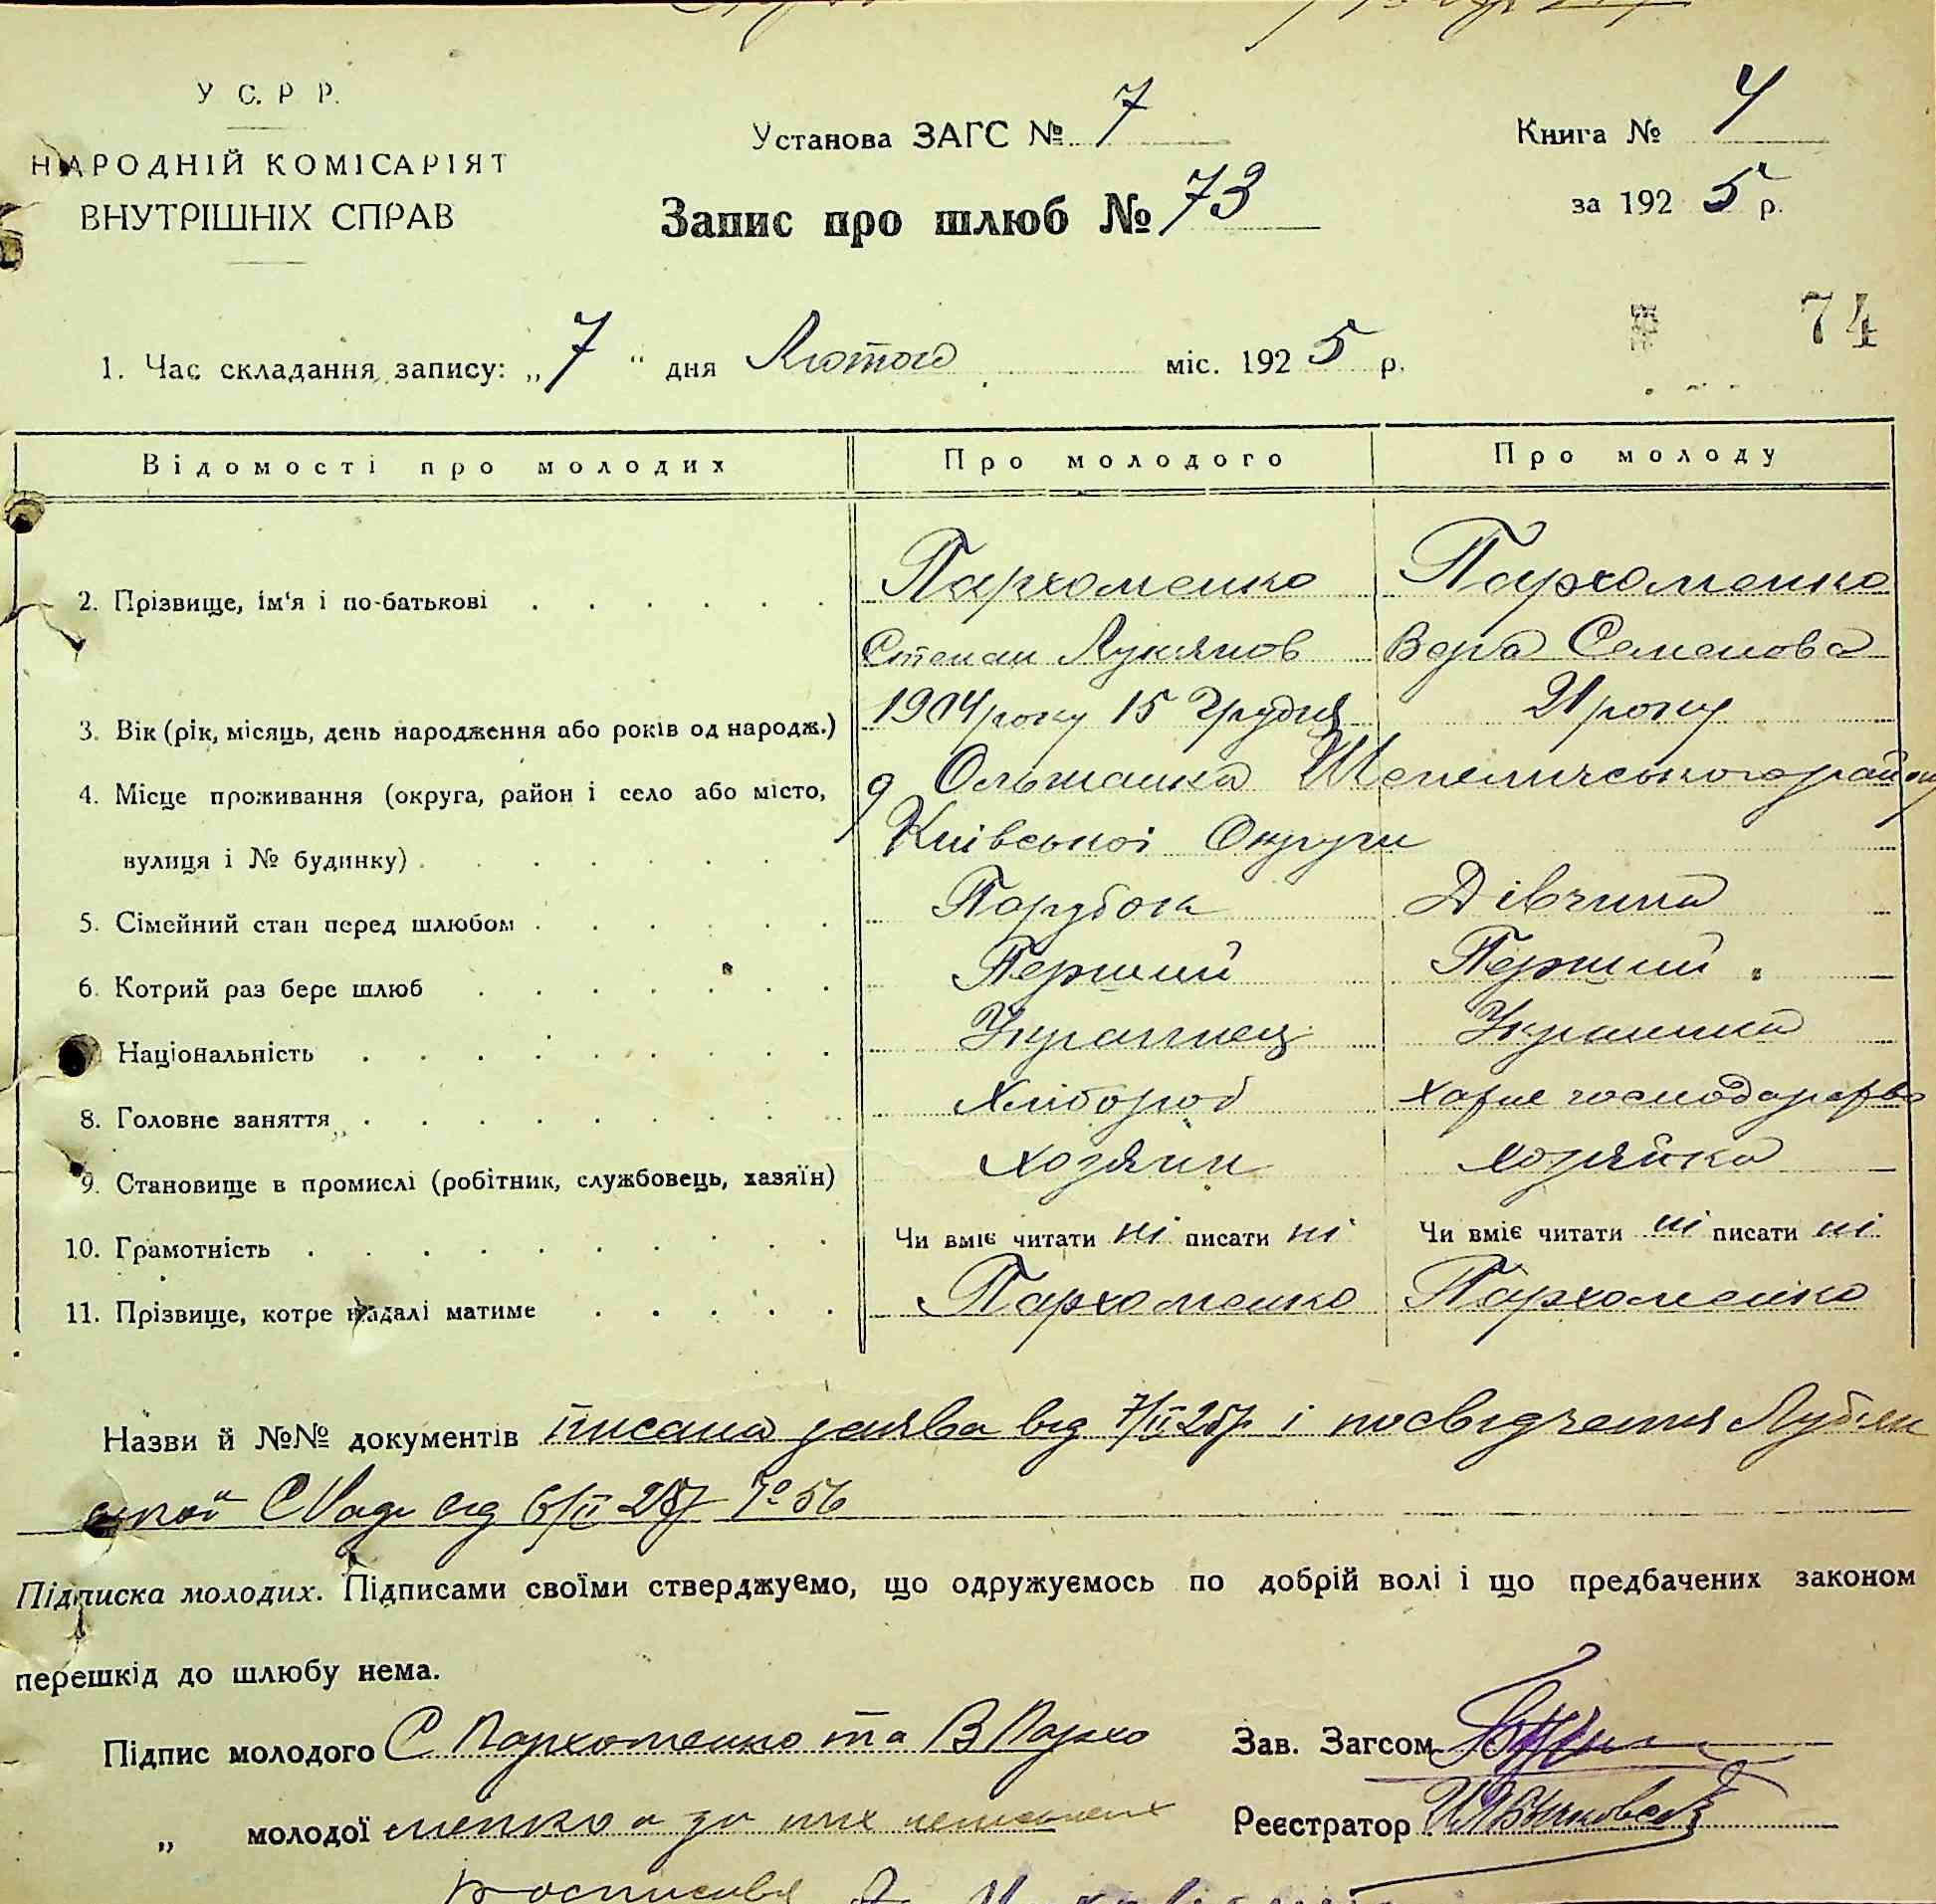 У С. Р Р.
НАРОДНІЙ КОМІСАРІЯТ
ВНУТРІШНІХ СПРАВ
Установа ЗАГС № 7
Запис про шлюб № 73
Книга № 4
за 1925 р.
74
1. Час складання запису: „7“ дня Лютого міс. 1925 р.
Відомості про молодих Про молодого Про молоду
2. Прізвище, ім'я і по-батькові Пархоменко Пархоменко
Степан Лукянов Вера Семенова
3. Вік (рік, місяць, день народження або років од народж.) 1904 року 15 Грудня 21 року
4. Місце проживання (округа, район і село або місто, д Ольшанка Шепелического району
вулиця і № будинку) Київської Округи
5. Сімейний стан перед шлюбом Парубок Дівчина
6. Котрий раз бере шлюб Перший Перший
Національність Украинец Украинка
8. Головне заняття Хлібороб господарство
9. Становище в промислі (робітник, службовець, хазяїн) Хозяин хозяйка
10. Грамотність Чи вміє читати ні писати ні Чи вміє читати ні писати ні
11. Прізвище, котре надалі матиме Пархоменко Пархоменко
Назви й №№ документів писана заява від 7/II 25р і посвідчення Лубян
ской С/Ради від 6/II 25р № 56
Підписка молодих. Підписами своїми стверджуємо, що одружуємось по добрій волі і що предбачених законом
перешкід до шлюбу нема.
Підпис молодого С Пархоменко та В Пархо
Зав. Загсом
„ молодої менко а за них
Реєстратор